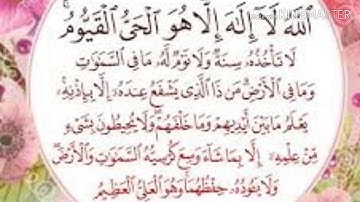 ٱللَّهُ لَآ إِلَٰهَ إِلَّا هُوَ ٱلْحَىُّ ٱلْقَيُّومُ ۚ
لَا تَأْخُذُهُۥ سِنَةٌ وَلَا نَوْمٌ لَّهُۥ مَا فِى ٱلسَّمَٰوَٰتِ
وَمَا فِى ٱلْأَرْضِ مَن ذَا ٱلَّذِى يَشْفَعُ عِندَهُۥٓ إِلَّا بِإِذْنِهِۦ
يَعْلَمُ مَا بَيْنَ أَيْدِيهِمْ وَمَا خَلْفَهُمْ وَلَا يُحِيطُونَ بِشَىْءٍ
مِّنْ عِلْمِهِۦٓ إِلَّا بِمَا شَآءَ وَسِعَ كُرْسِيُّهُ ٱلسَّمَٰوَٰتِ وَٱلْأَرْضَ
وَلَا يَـُٔودُهُۥ حِفْظُهُمَا وَهُوَ ٱلْعَلِىُّ ٱلْعَظِيمُ